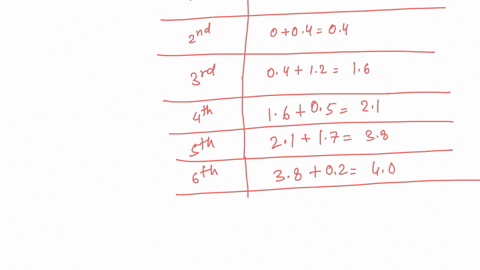 2nd 0+0.4=0.4
3rd 0.4+1.2= 1.6
4th 1.6+0.5= 2.1
5th 2.1+1.7= 3.8
6th 3.8+0.2= 4.0